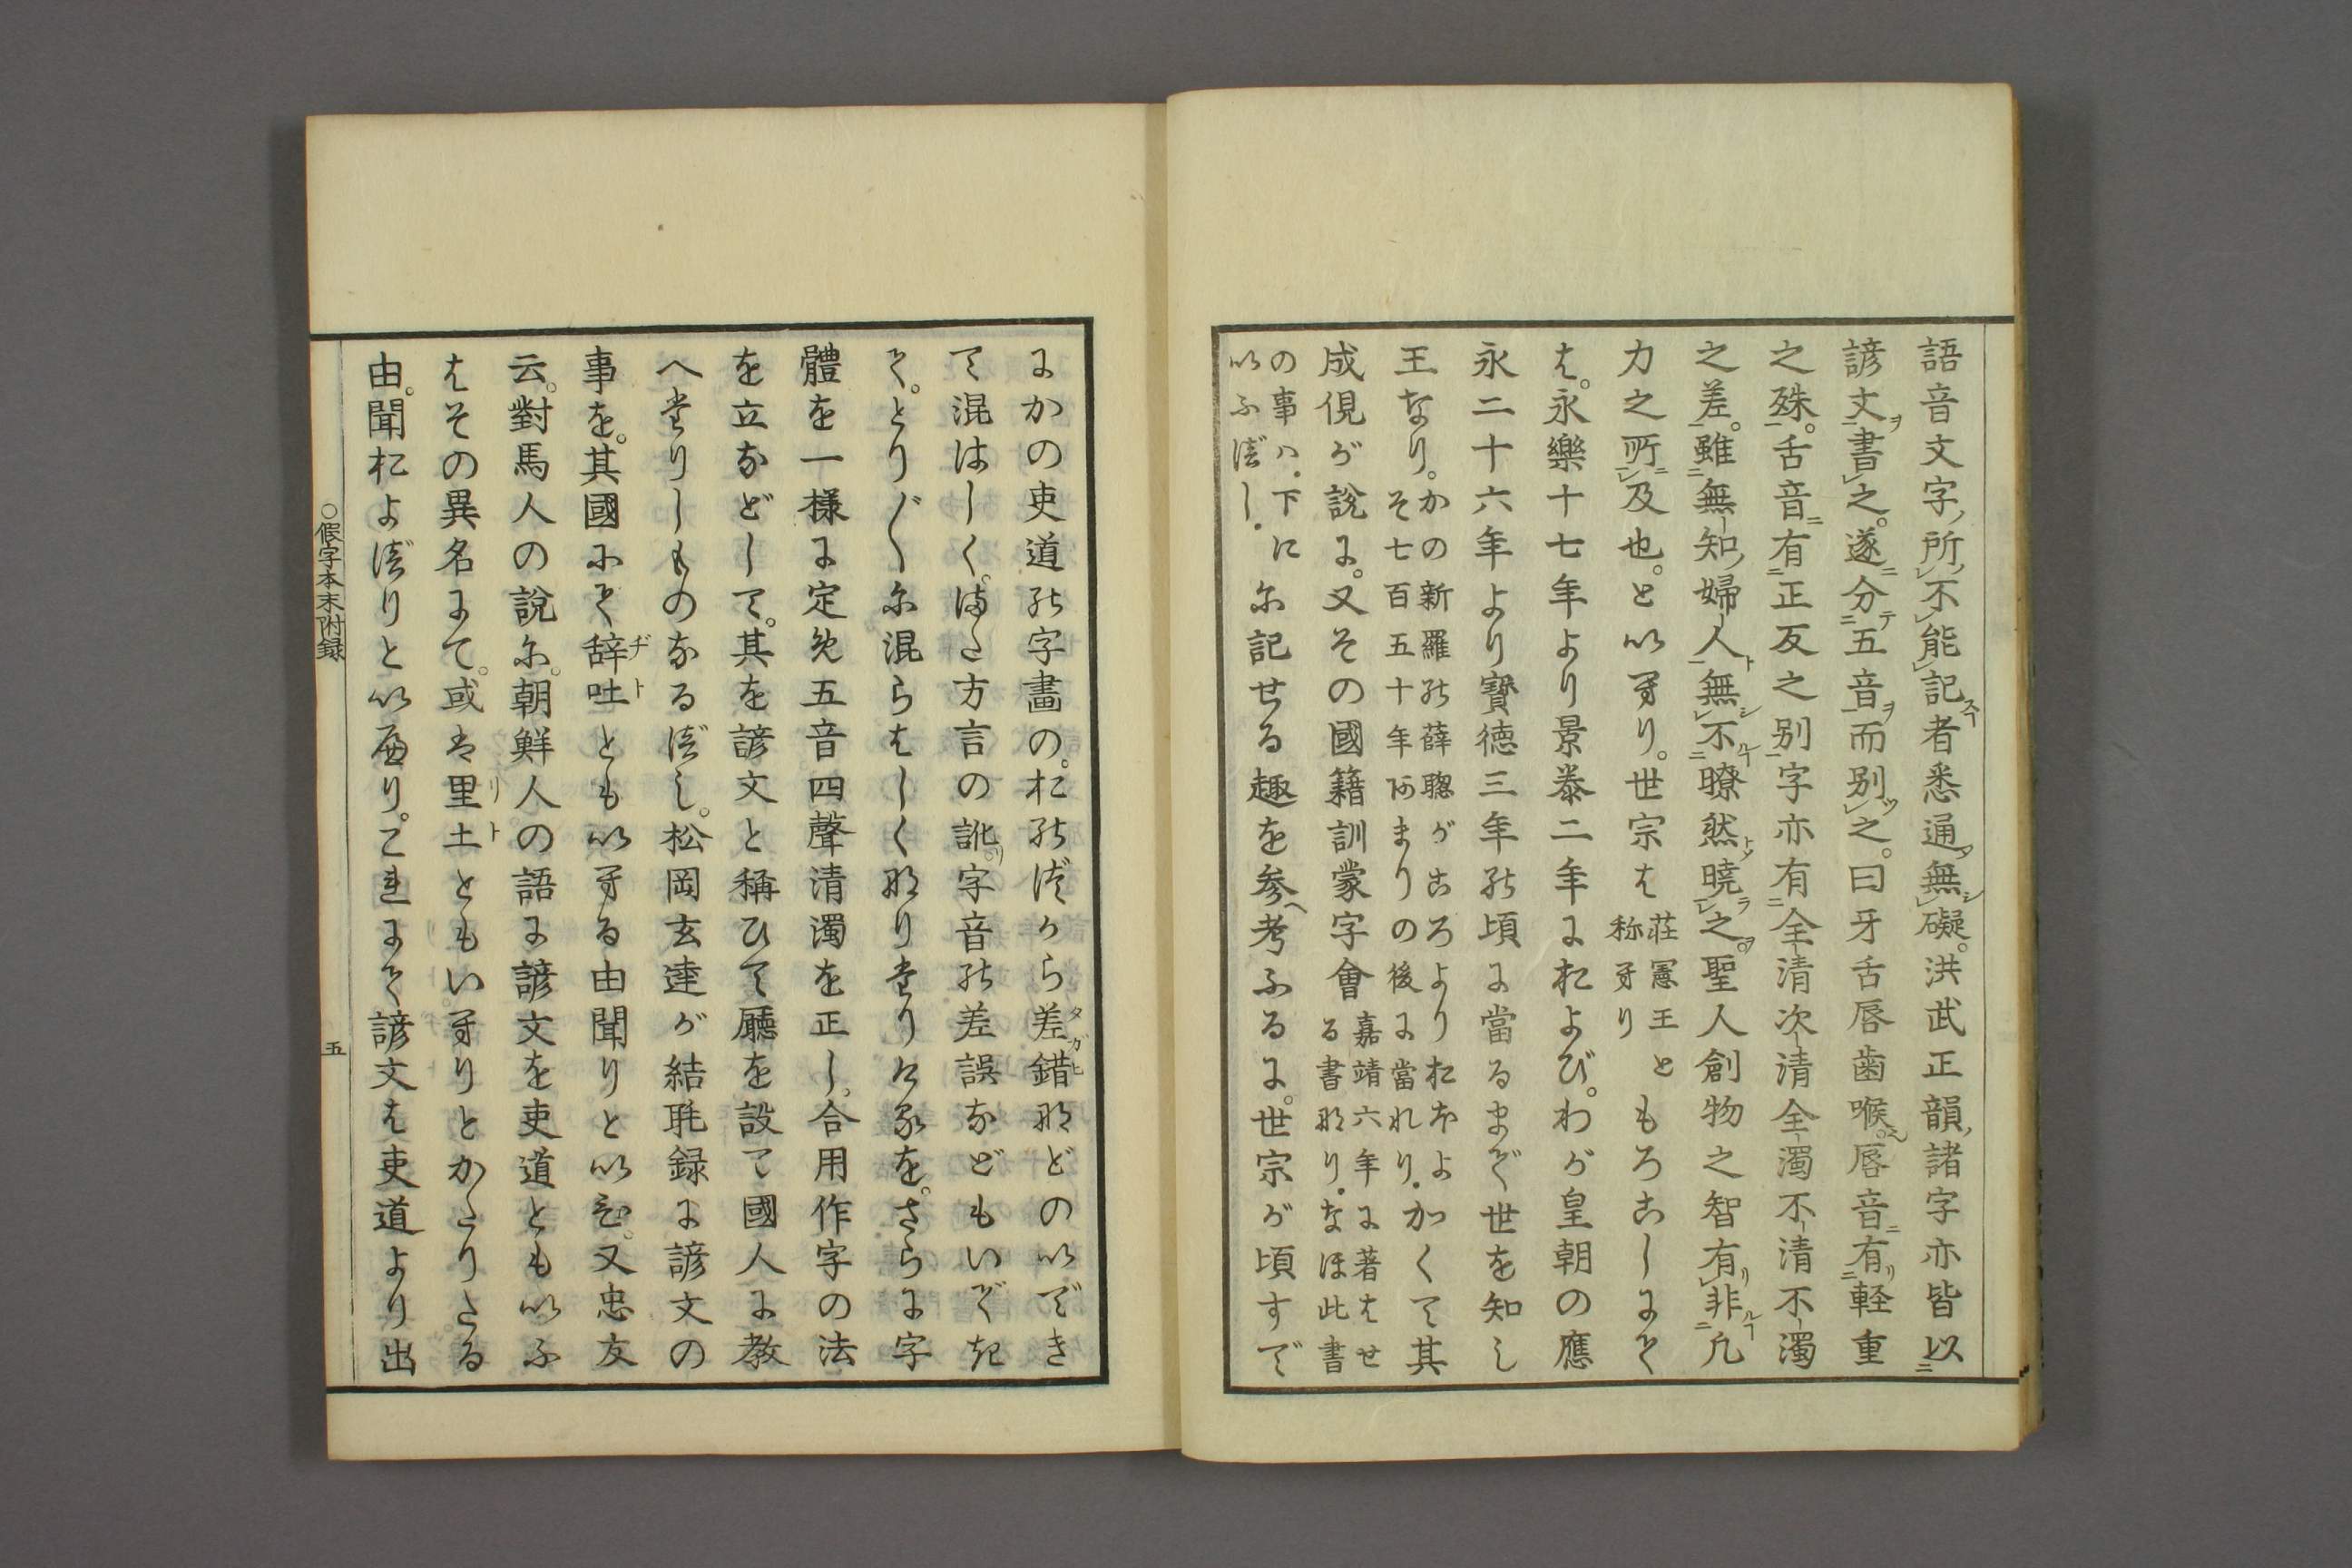 語音文字所不能記者悉通無礙。洪武正韻諸字亦皆以
諺文書之。遂分五音而別之。曰牙舌唇歯喉。唇音有軽重
之殊。舌音有正反之別字亦有全清次清全濁不清不濁
之差。雖無知婦人無不瞭然暁之。聖人創物之智有非凡
力之所及也。といへり。世宗は荘憲王と称へりもろこしにて
は。永樂十七年より景泰二年におよび。わが皇朝の應
永二十六年より寳徳三年の頃に當るまで世を知し
王なり。かの新羅の薛聰がころよりおほよそ七百五十年あまりの後に當れり。かくて其
成俔が説に。又その國籍訓蒙字會嘉靖六年に著はせる書なり。なほ此書の事ハ。下にいふべし。
に記せる趣を参考ふるに。世宗が頃すで
にかの吏道の字畫の。おのづから差錯などのいでき
て混はしく。はた方言の訛字音の差誤などもいでき
て。とり〴〵に混らはしくなりたりけるを。さらに字
體を一様に定め五音四聲清濁を正し。合用作字の法
を立などして。其を諺文と稱ひて廳を設て國人に教
へたりしものなるべし。松岡玄達が結毦録に諺文の
事を。其國にて辞吐ともいへる由聞りといひ。又忠友
云。對馬人の説に。朝鮮人の語に諺文を吏道ともいふ
はその異名にて。或は里土ともいへりとかたりたる
由。聞およべりといへり。これにて諺文は吏道より出
○假字本末附録
五